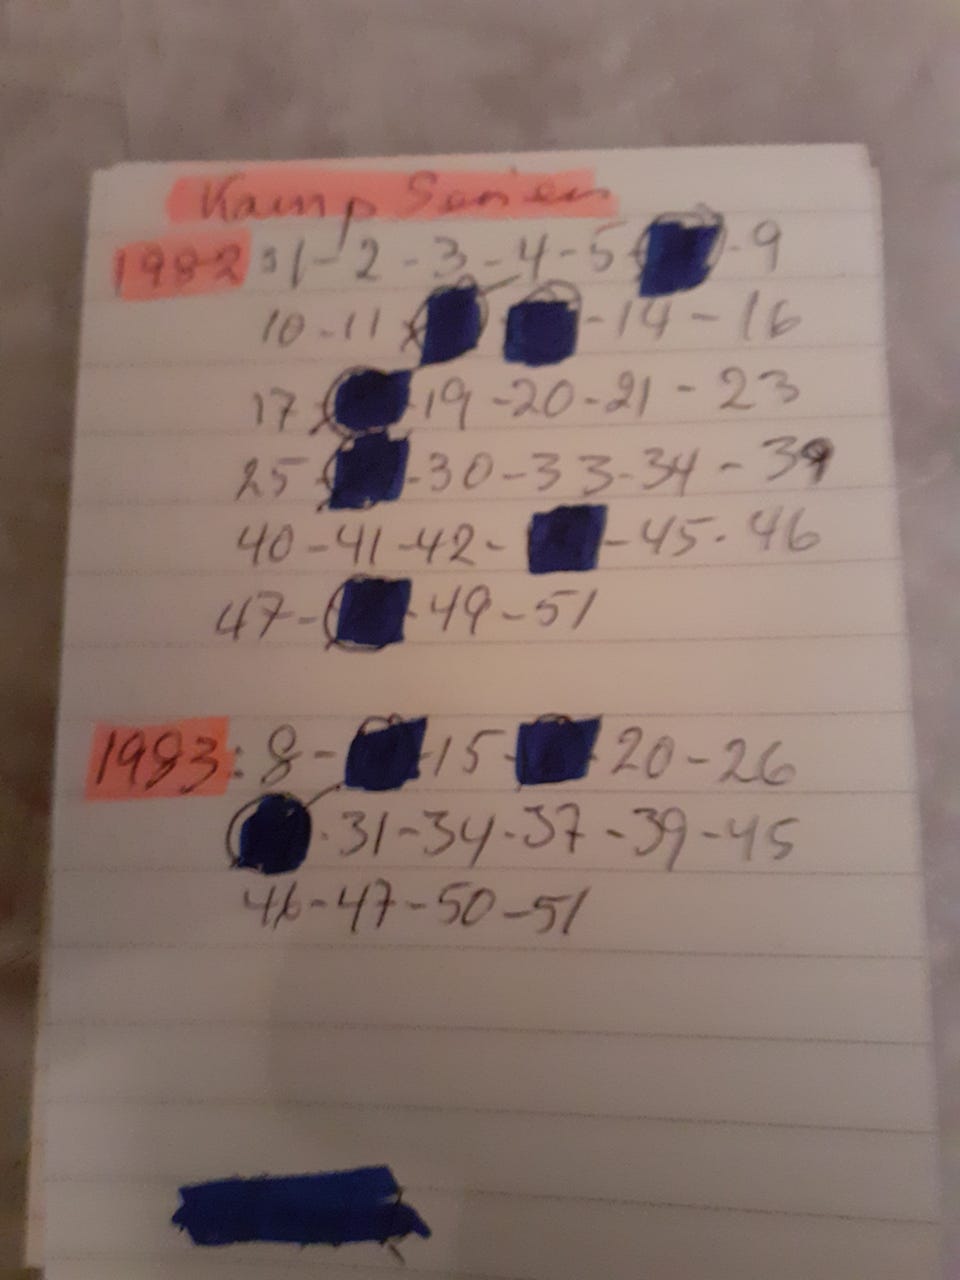 Kamp Serien
1982: 1-2-3-4-5 -9
10-11 -14-16
17 -19-20-21-23
25 -30-33-34-39
40-41-42- -45.46
47- -49-51
1983: 8- -15- -20-26
-31-34-37-39-45
46-47-50-51